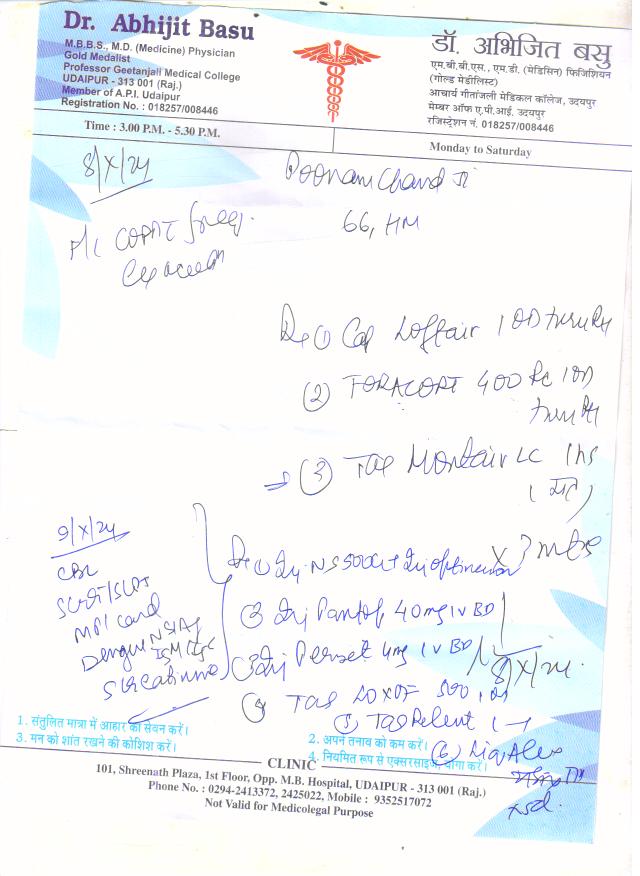 Dr. Abhijit Basu
M.B.B.S., M.D. (Medicine) Physician
Gold Medalist
Professor Geetanjali Medical College
UDAIPUR - 313 001 (Raj.)
Member of A.P.I. Udaipur
Registration No. : 018257/008446
डॉ. अभिजित बसु
एम.बी.बी.एस., एम.डी. (मेडिसिन) फिजिशियन
(गोल्ड मेडीलिस्ट)
आचार्य गीतांजली मेडिकल कॉलेज, उदयपुर
मेम्बर ऑफ ए.पी.आई, उदयपुर
रजिस्ट्रेशन नं. 018257/008446
Time : 3.00 P.M. - 5.30 P.M.
Monday to Saturday
8/X/24
Poonam Chand Ji
66, HM
(1) Cap 1 OD
(2) FORACORT 400 1 OD
(3) Tab Montair LC 1 hs
x 3 mths
9/X/24
CBC
SGOT/SGPT
MP/card
Dengue NS1Ag
IgM/IgG
S. creatinine
(1) Inj NS 500cc +
(2) Inj Pantop 40mg IV BD
(3) Inj 4mg IV BD
8/X/24
(4) Tab 500
(5) Tab Relent 1
(6) Liq Alex
x5d.
1. संतुलित मात्रा में आहार का सेवन करें।
2. अपने तनाव को कम करें।
3. मन को शांत रखने की कोशिश करें।
4. नियमित रूप से एक्सरसाइज, योगा करें।
CLINIC
101, Shreenath Plaza, 1st Floor, Opp. M.B. Hospital, UDAIPUR - 313 001 (Raj.)
Phone No. : 0294-2413372, 2425022, Mobile : 9352517072
Not Valid for Medicolegal Purpose